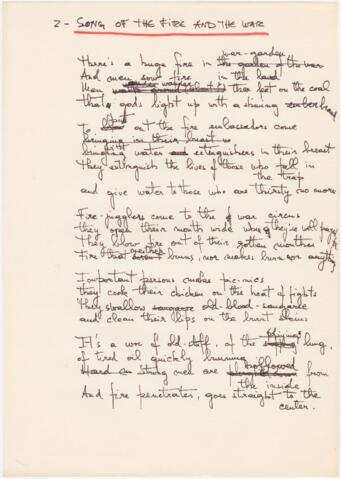 2 - SONG OF THE FIRE AND THE WAR
war-garden
There's a huge fire in the garden of the war
And men sow fire in the land
Men their feet on the coal
that gods light up with a shining
To put out the fire embassadors come
bringing in their breast
bringing water extinguishers in their breast
They extinguish the lives of those who fall in
the trap
and give water to those who are thirsty no more
Fire-jugglers come to the war circus
they open their mouth wide they'll pay
They blow fire out of their rotten mouthes
Fire that burns, nor makes burn
Important persons makes pic-nics
they cook their chicken on the heat of fights
They swallow old-blood-
and clean their lips on the burnt
It's a wore of old-stuff, of the lung,
of tired oil quickly burning
Hard strong men are from
the inside
And fire penetrates, goes straight to the
center.